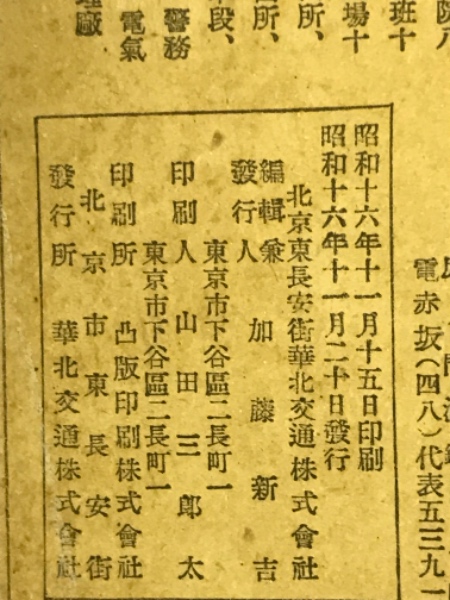 班十
場十
所、
所、
段、
警務
電氣
廠
電赤坂(四八)代表五三九一
昭和十六年十一月十五日印刷
昭和十六年十一月二十日發行
北京東長安街華北交通株式會社
編輯兼
發行人 加藤新吉
東京市下谷區二長町一
印刷人 山田三郎太
東京市下谷區二長町一
印刷所 凸版印刷株式會社
北京市東長安街
發行所 華北交通株式會社